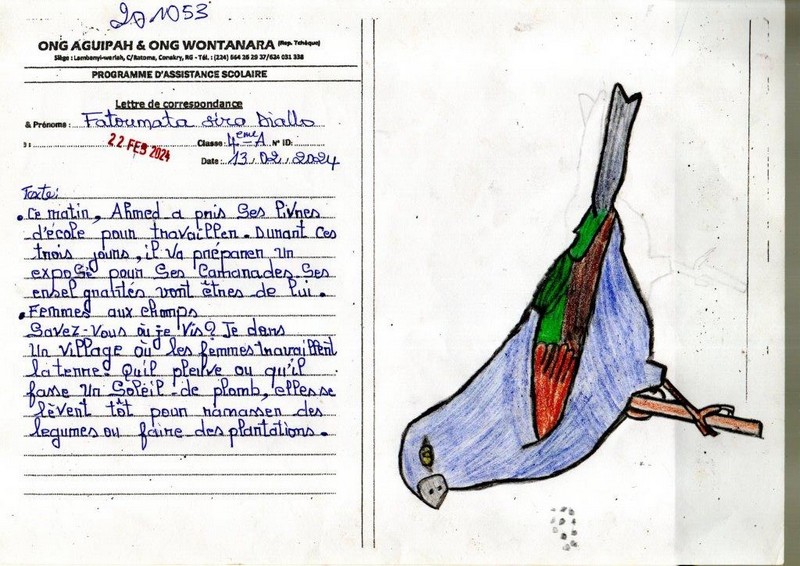 201053
ONG AGUIPAH & ONG WONTANARA (Rep. Tchèque)
Siège : Lambanyi-wariah, C/Ratoma, Conakry, RG - Tél. : (224) 664 26 29 37/624 031 338
PROGRAMME D'ASSISTANCE SCOLAIRE
Lettre de correspondance
& Prénoms : Fatoumata sira Diallo
22 FEB 2024
Classe : 4ème A N° ID:
Date : 13/02/2024
Texte;
. Ce matin, Ahmed a pris Ses livres
d'école pour travailler. Durant Ces
trois jours, il va préparer un
exposé pour Ses Camarades. Ses
vont êtres de lui.
. Femmes aux champs
Savez-Vous où je Vis? Je dans
Un Village où les femmes travaillent
la terre. Qu'il pleive ou qu'il
fasse Un Soleil-de plomb, elles se
lèvent tôt pour ramasser des
legumes ou faire des plantations.